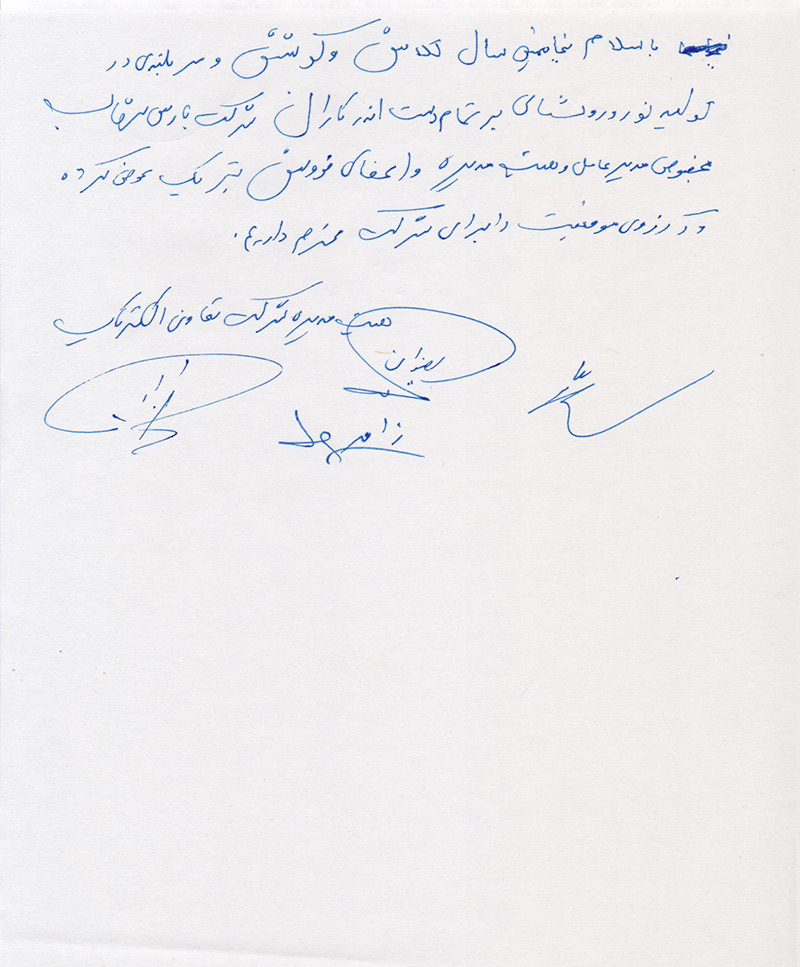 با سلام پنجاهمین سال تلاش و کوشش و سربلندی در
تولید نور و روشنائی بر تمام دست اندرکاران شرکت پارس شهاب
بخصوص مدیر عامل و هیئت مدیره و اعضای فروش تبریک عرض کرده
و آرزوی موفقیت را برای شرکت محترم داریم.
هیئت مدیره شرکت تعاونی الکتریک
رضوان